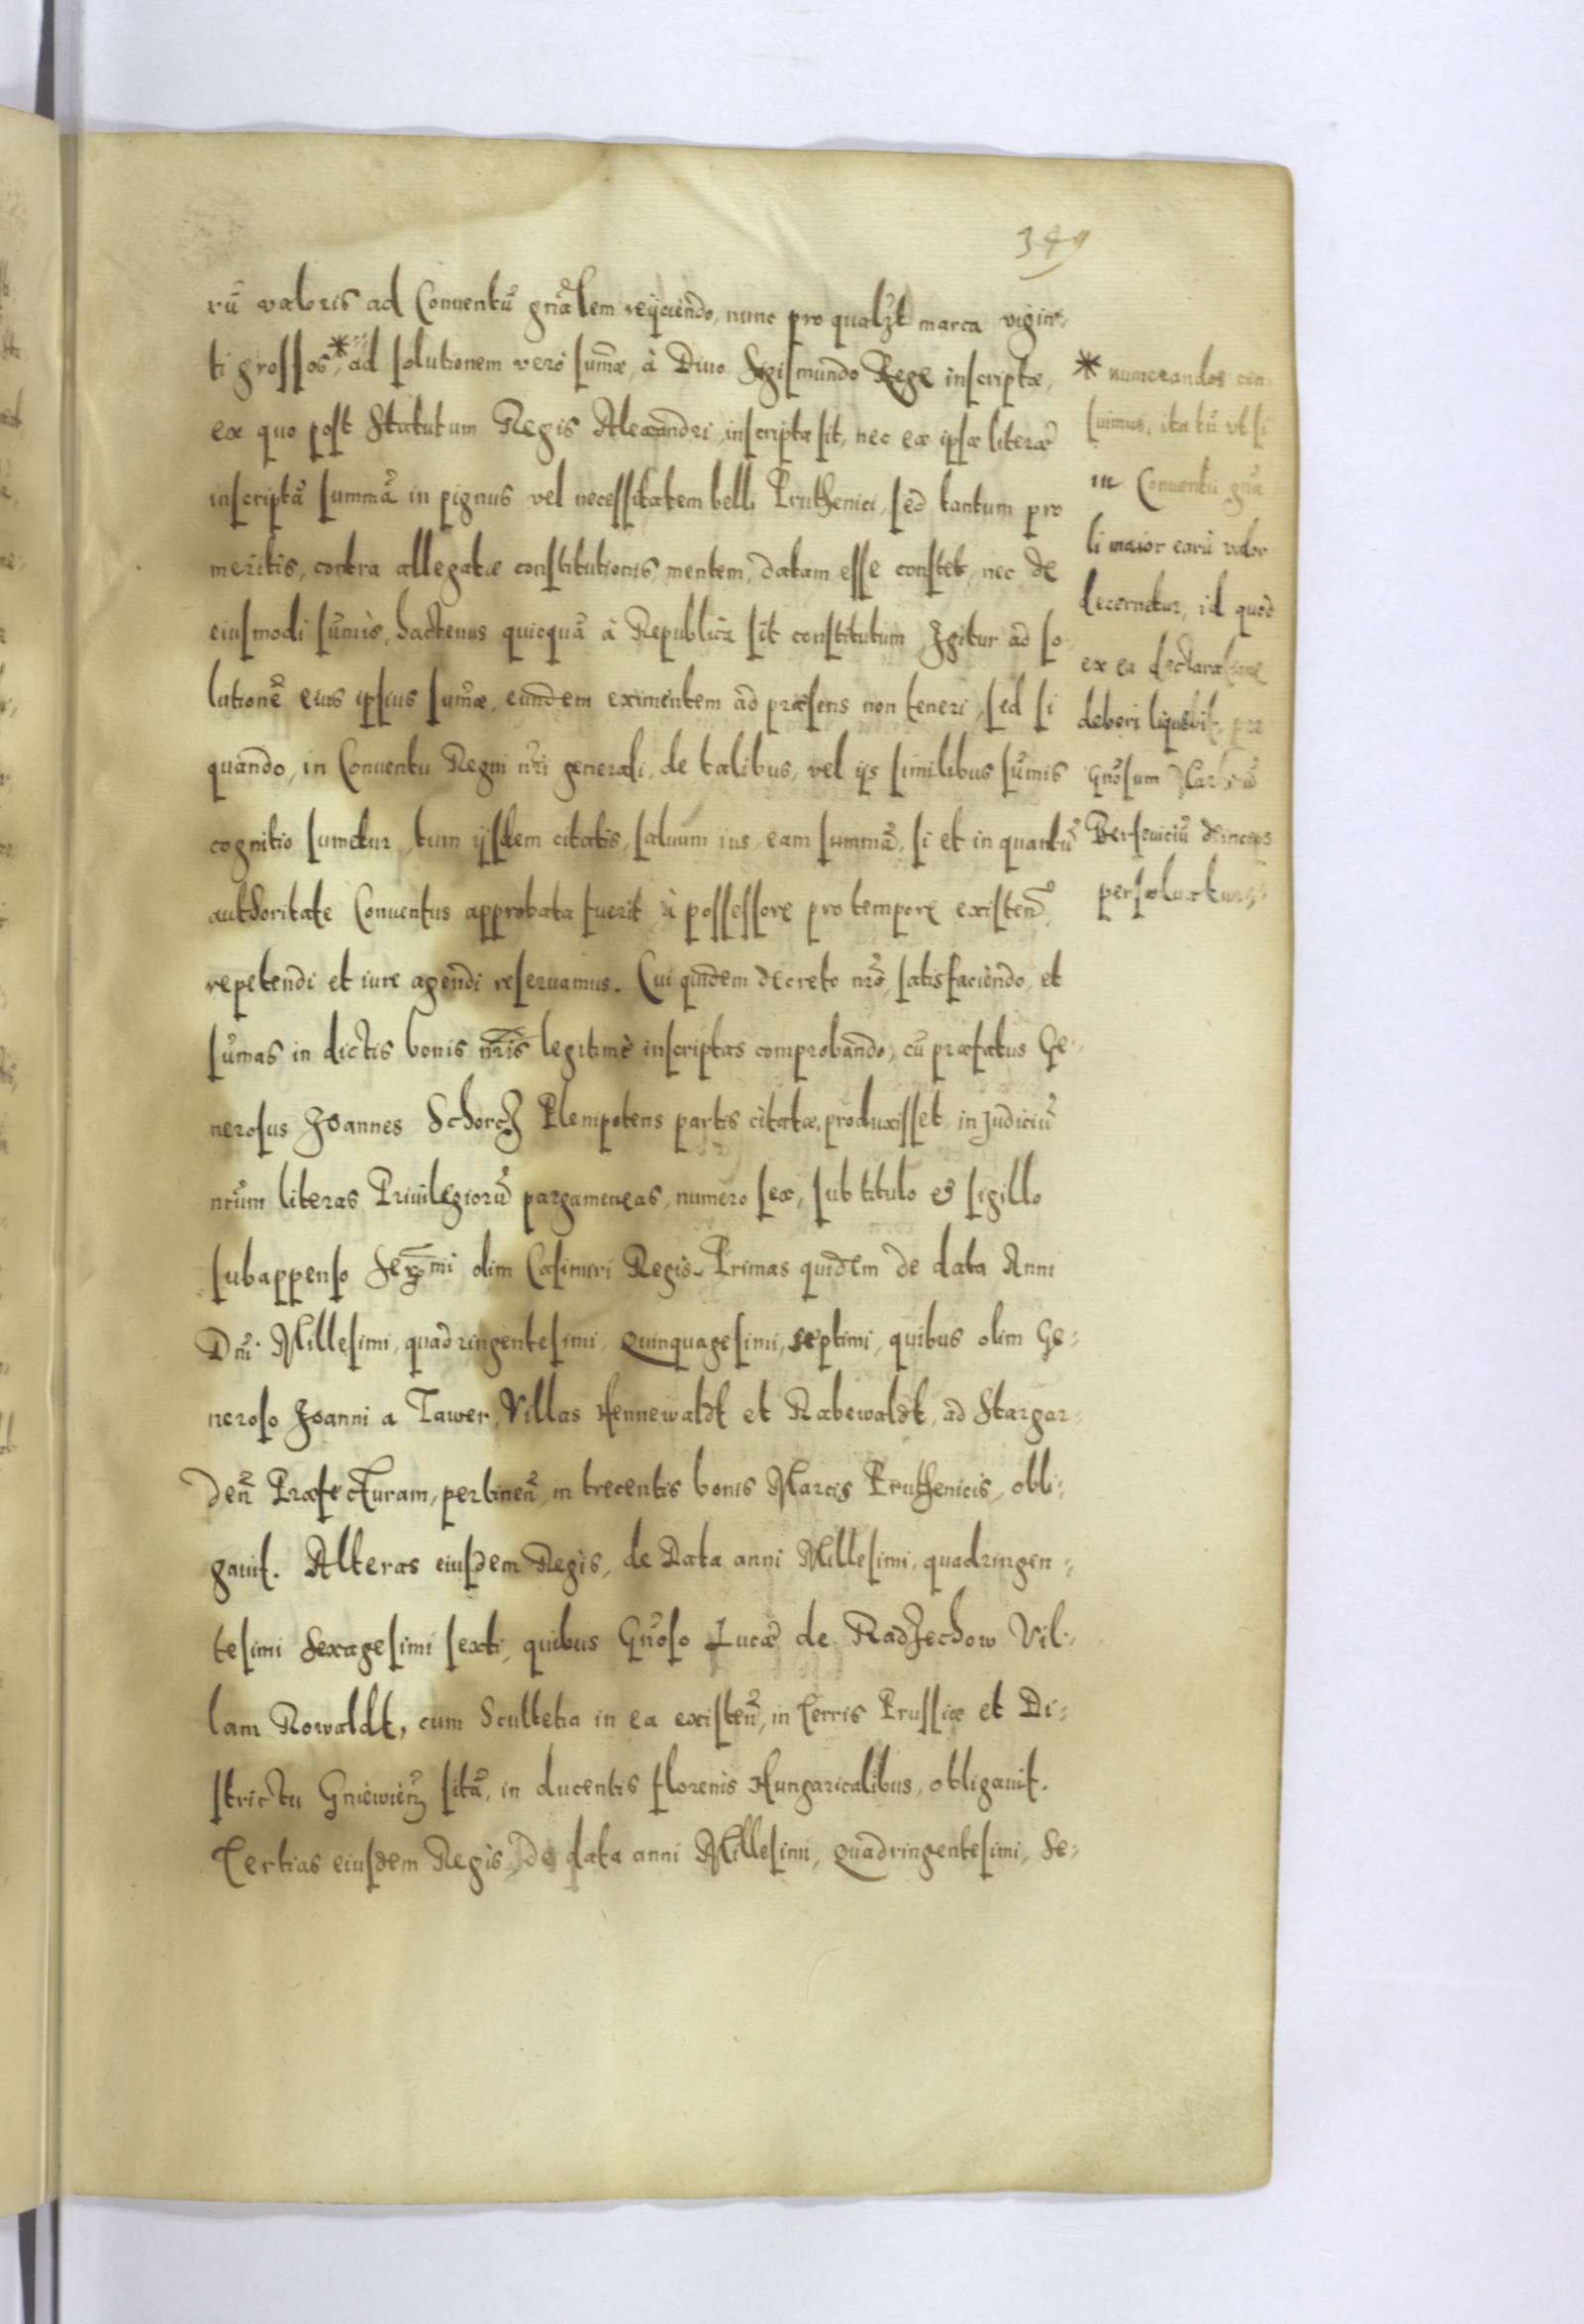 349
rũ valoris ad Conuentũ gnãlem reijciendo, nunc pro qualzt marca vigin-
ti grossos,* ad solutionem verò sum̃æ, à Diuo Sigismundo Rege inscriptæ,
ex quo post Statutum Regis Alexandri inscripta sit, nec eæ ipsæ literæ
inscriptã summã in pignus vel necessitatem belli Pruthenici, sed tantum pro
meritis, contra allegatæ constitutionis mentem, datam esse constet, nec de
eiusmodi sum̃is, hactenus quicquã à Republica sit constitutum Igitur ad so-
lutionẽ eius ipsius sum̃æ, eundem eximentem ad præsens non teneri, sed si
quando, in Conuentu Regni nr̃i generali, de talibus, vel ijs similibus sum̃is
cognitio sumetur, tum ijsdem citatis, saluum ius, eam summã, si et in quantũ
authoritate Conuentus approbata fuerit, à possessore pro tempore existeñ,
repetendi et iure agendi reseruamus. Cui quidem decreto nr̃o, satisfaciendo, et
sum̃as in dictis bonis nr̃is legitimè inscriptas comprobando, cũ præfatus Ge-
nerosus Joannes Schorcz Plenipotens partis citatæ, produxisset in Judiciũ
nr̃um literas Priuilegiorũ pargameneas, numero sex, sub titulo et sigillo
subappenso Serm̃i olim Casimiri Regis. Primas quidem de data Anni
Dnĩ Millesimi, quadringentesimi, Quinquagesimi, septimi, quibus olim Ge-
neroso Joanni a Tawer, Villas Hennewaldt et Rabewaldt, ad Stargar-
deñ Præfecturam, pertineñ, in trecentis bonis Marcis Pruthenicis, obli-
gauit. Alteras eiusdem Regis, de Data anni Millesimi, quadringen-
tesimi Sexagesimi sexti, quibus Gñoso Lucæ de Radzechow Vil-
lam Rowaldt, cum Scultetia in ea existeñ, in Terris Prussiæ et Di-
strictu Gniewieñ sitã, in ducentis florenis Hungaricalibus, obligauit.
Tertias eiusdem Regis, de data anni Millesimi, Quadringentesimi, Se-
* numerandos cen
suimus, ita tñ vt si
in Conuentu gñã
li maior earũ valor
decernetur, id quod
ex ea declaratione
deberi liquebit, per
Gñosum
Berseuiciũ deinceps
persoluatur